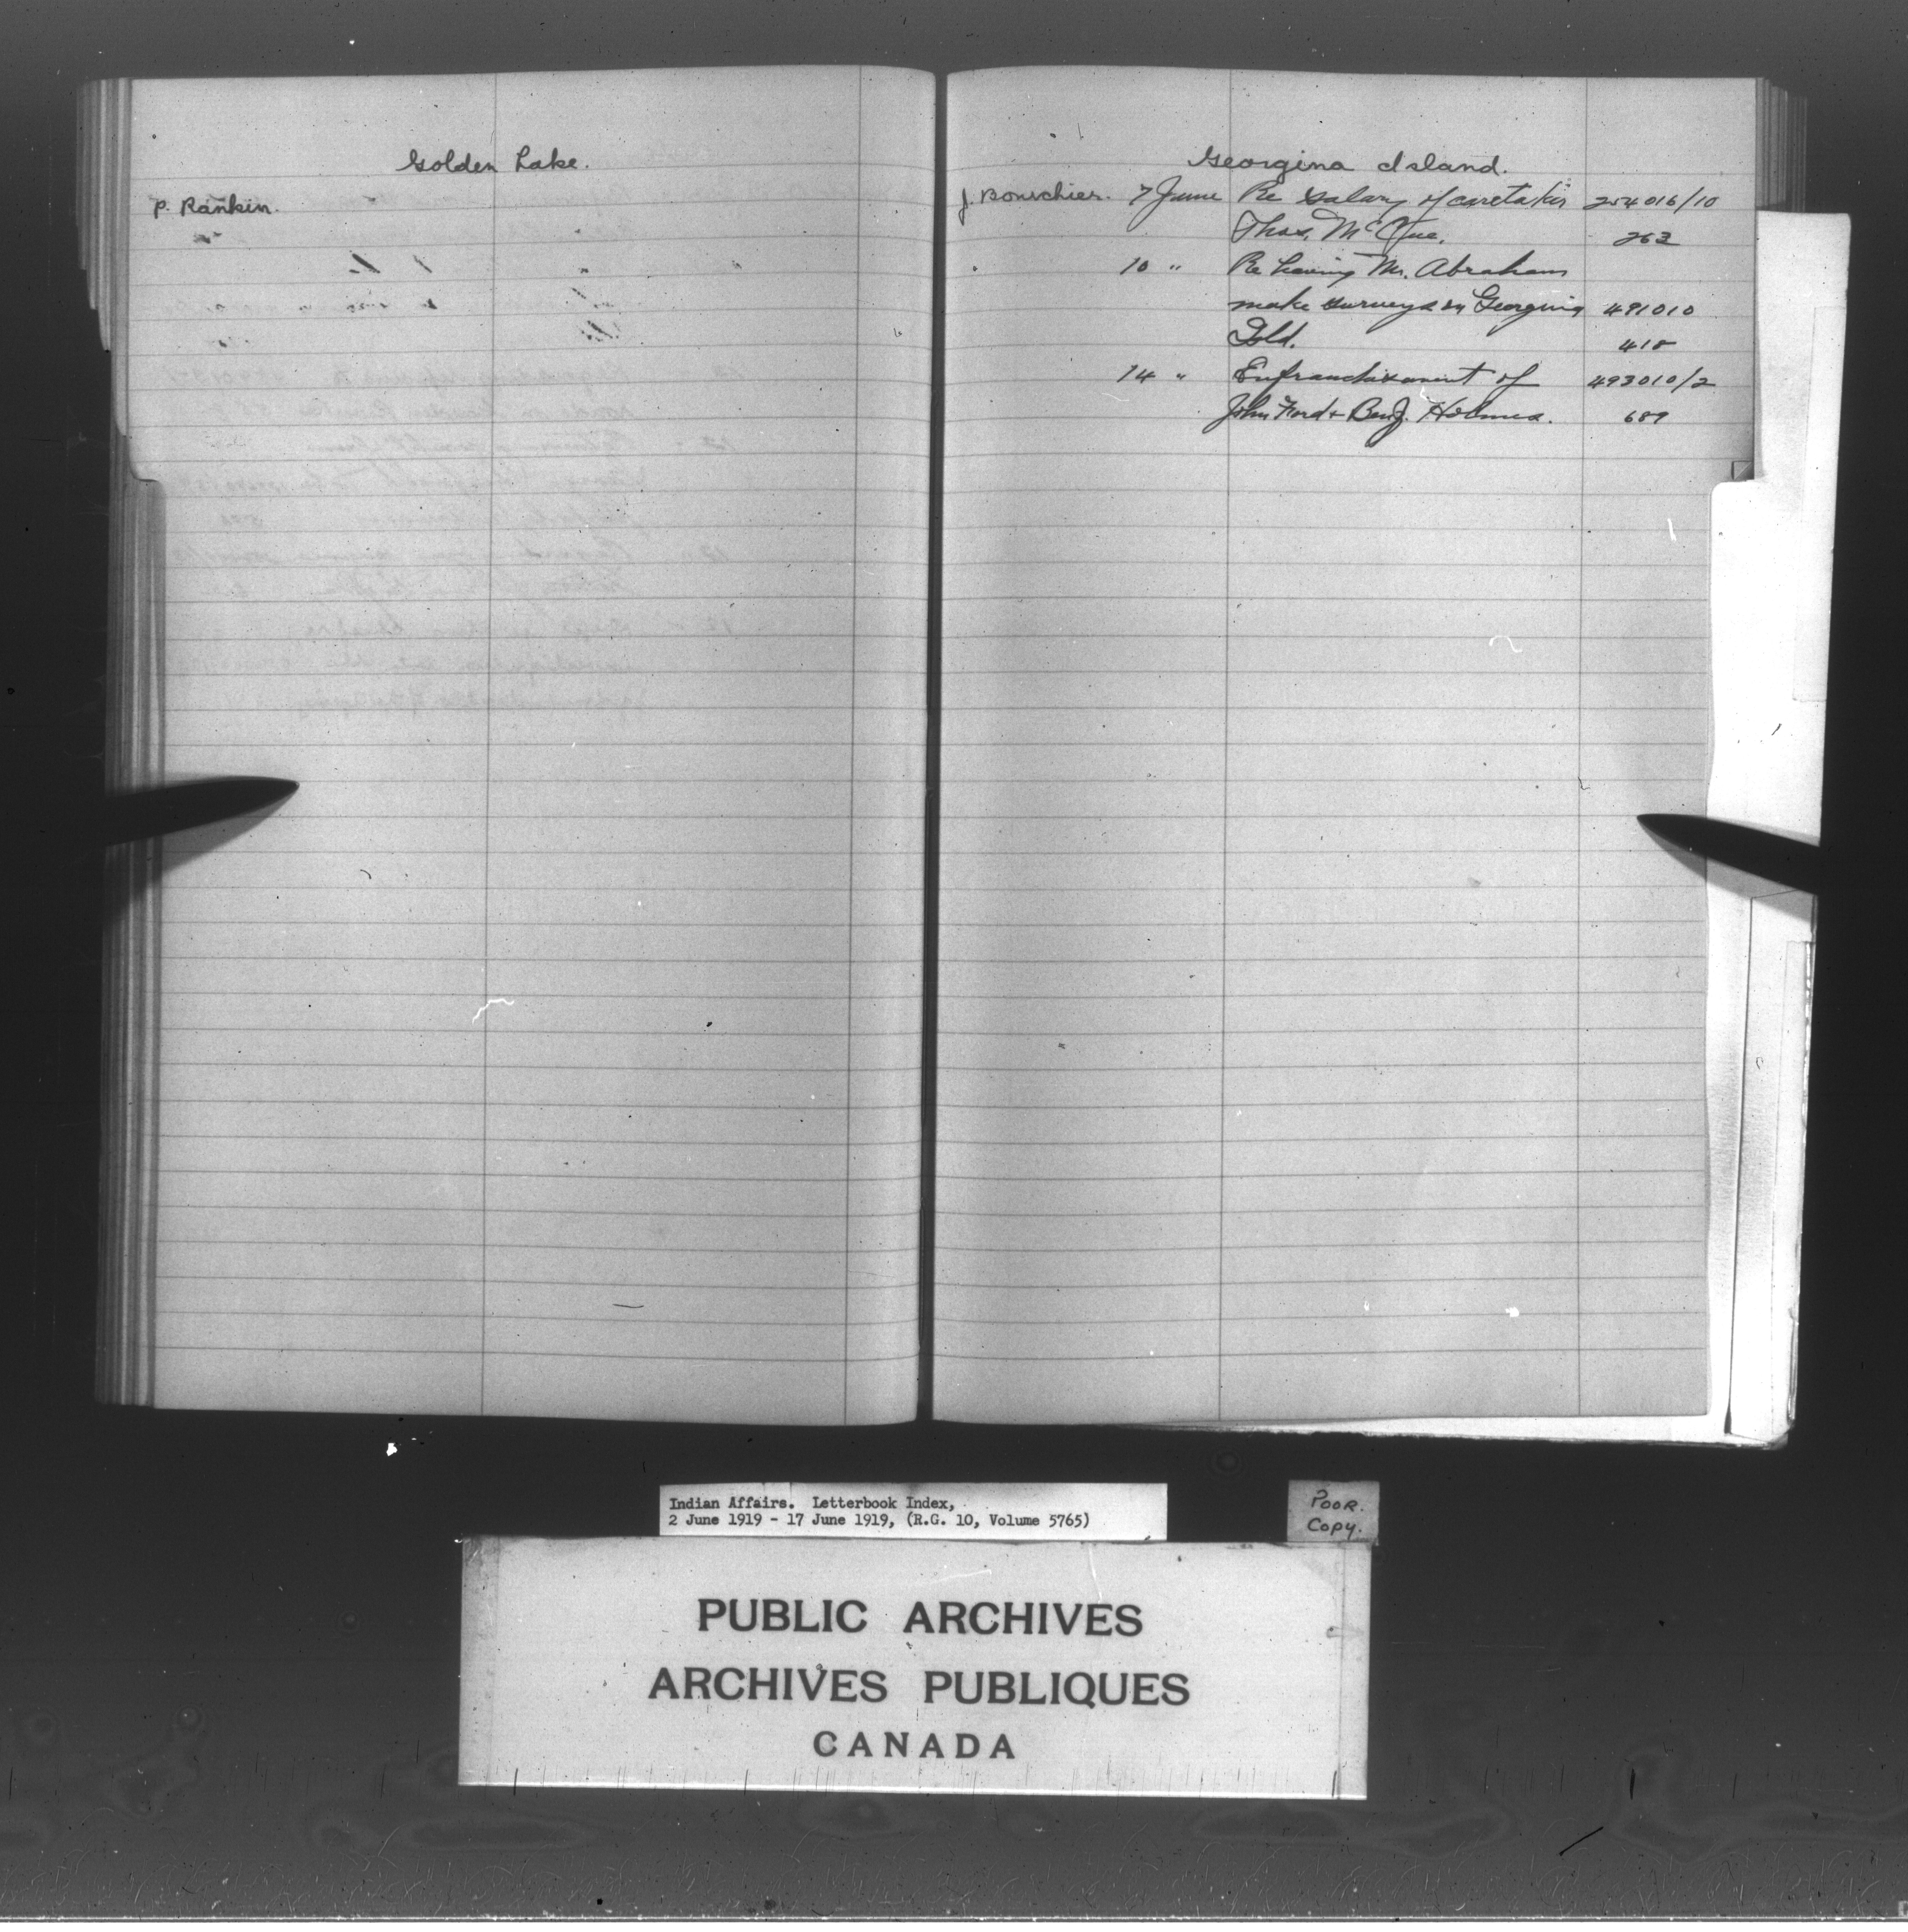 Golden Lake.
P. Rankin.
Georgina Island.
J. Bourchier. 7 June Re Salary of caretaker 254016/10
Thos. McCue. 263
10 " Re having Mr. Abraham
make surveys on Georgina 491010
Isld. 418
14 " Enfranchisement of 493010/2
John Ford + Benj. Holmes. 689
Indian Affairs. Letterbook Index,
2 June 1919 - 17 June 1919, (R.G. 10, Volume 5765)
POOR.
Copy.
PUBLIC ARCHIVES
ARCHIVES PUBLIQUES
CANADA